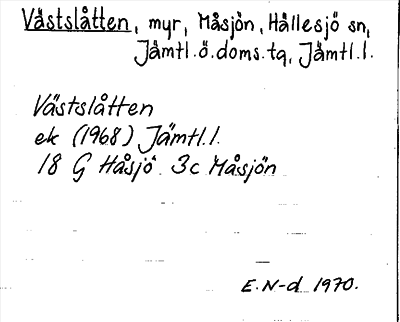 Västslåtten, myr, Måsjön, Hållesjö sn,
Jämtl.ö.doms.tq, Jämtl.l.
Västslåtten
ek (1968) Jämtl.l.
18 G Håsjö 3c Måsjön
E.N-d 1970.